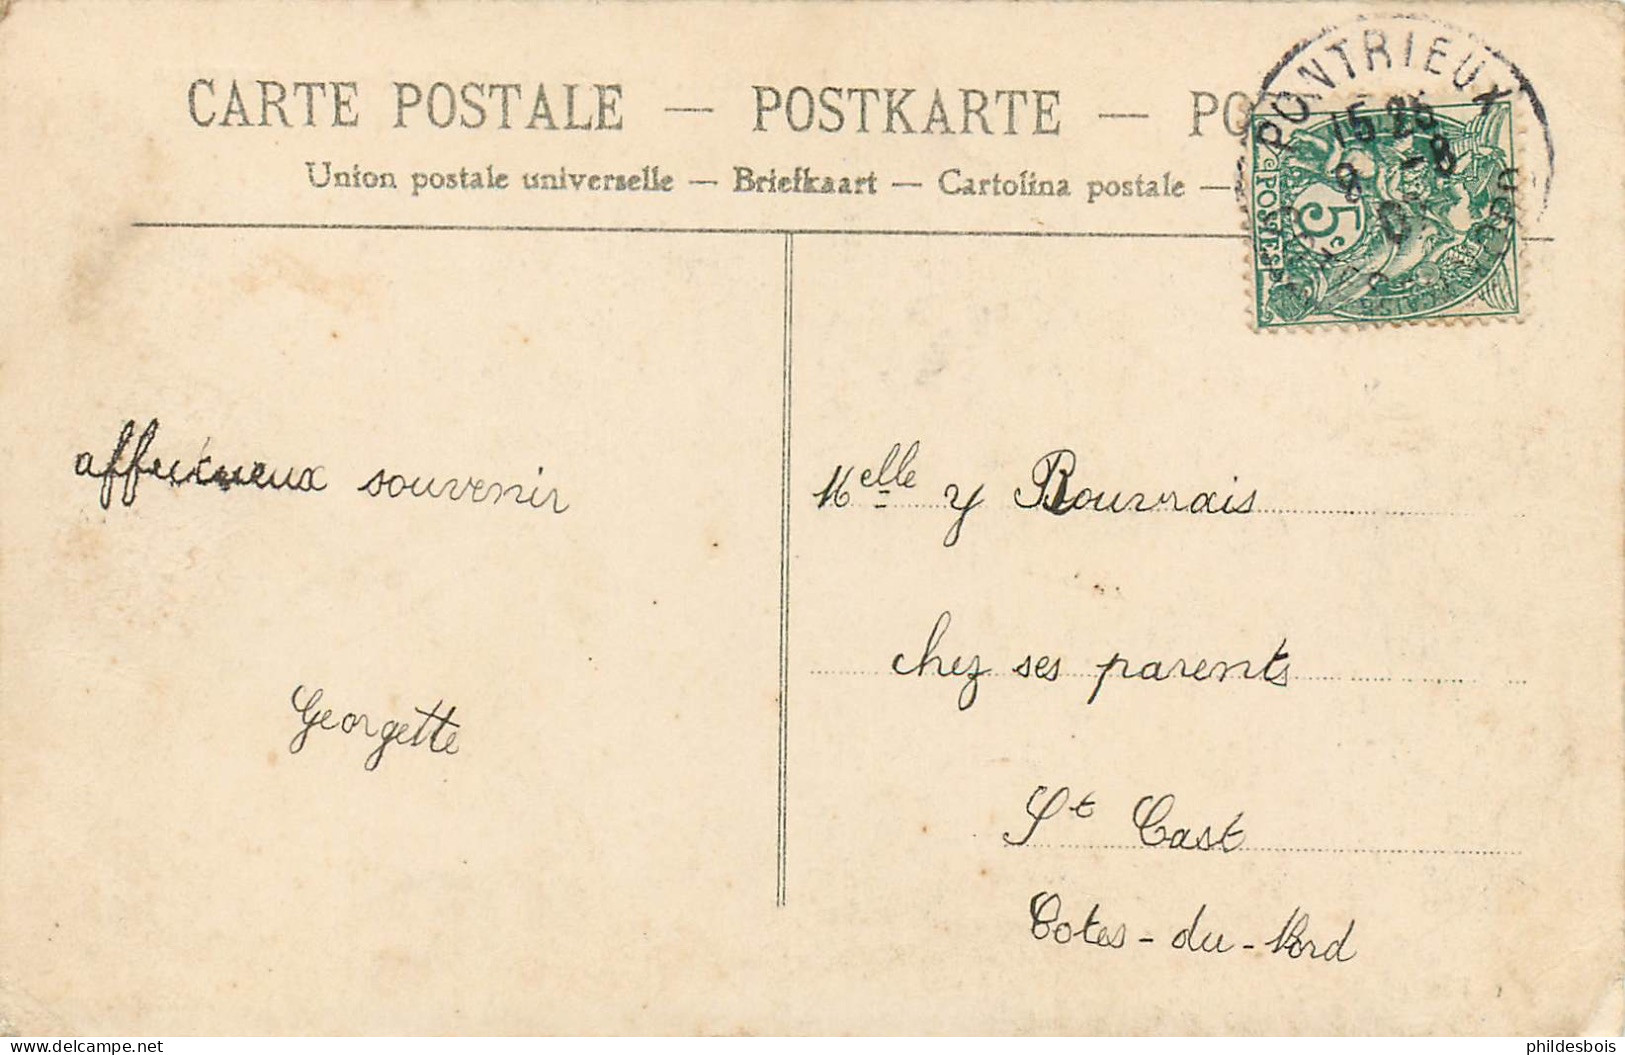 CARTE POSTALE — POSTKARTE — PO
Union postale universelle — Briefkaart — Cartolina postale —
PONTRIEUX
15 25
8 -8
POSTES
5c
affectueux souvenir
Georgette
Melle Y Rouvrais
chez ses parents
St Cast
Cotes-du-Nord
phildesbois